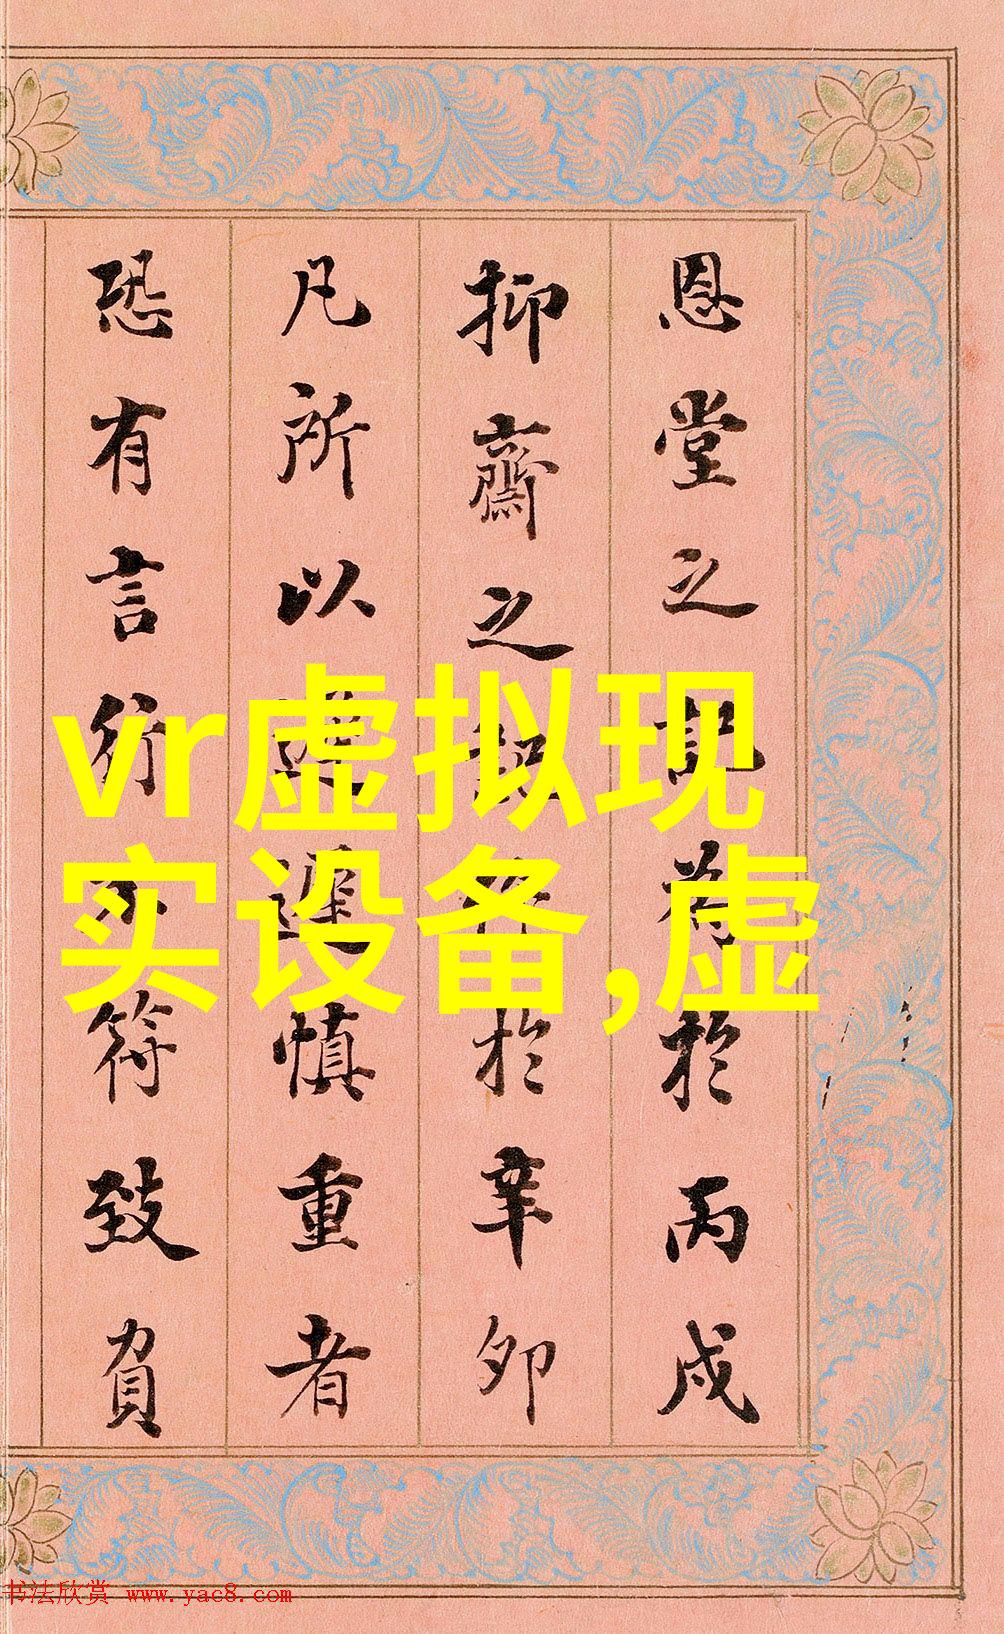 恩堂之記為於丙戌
抑齋之記作於辛卯
凡所以遲遲慎重者
恐有言行不符致負
vr虚拟现
实设备,虚
书法欣赏 www.yac8.com